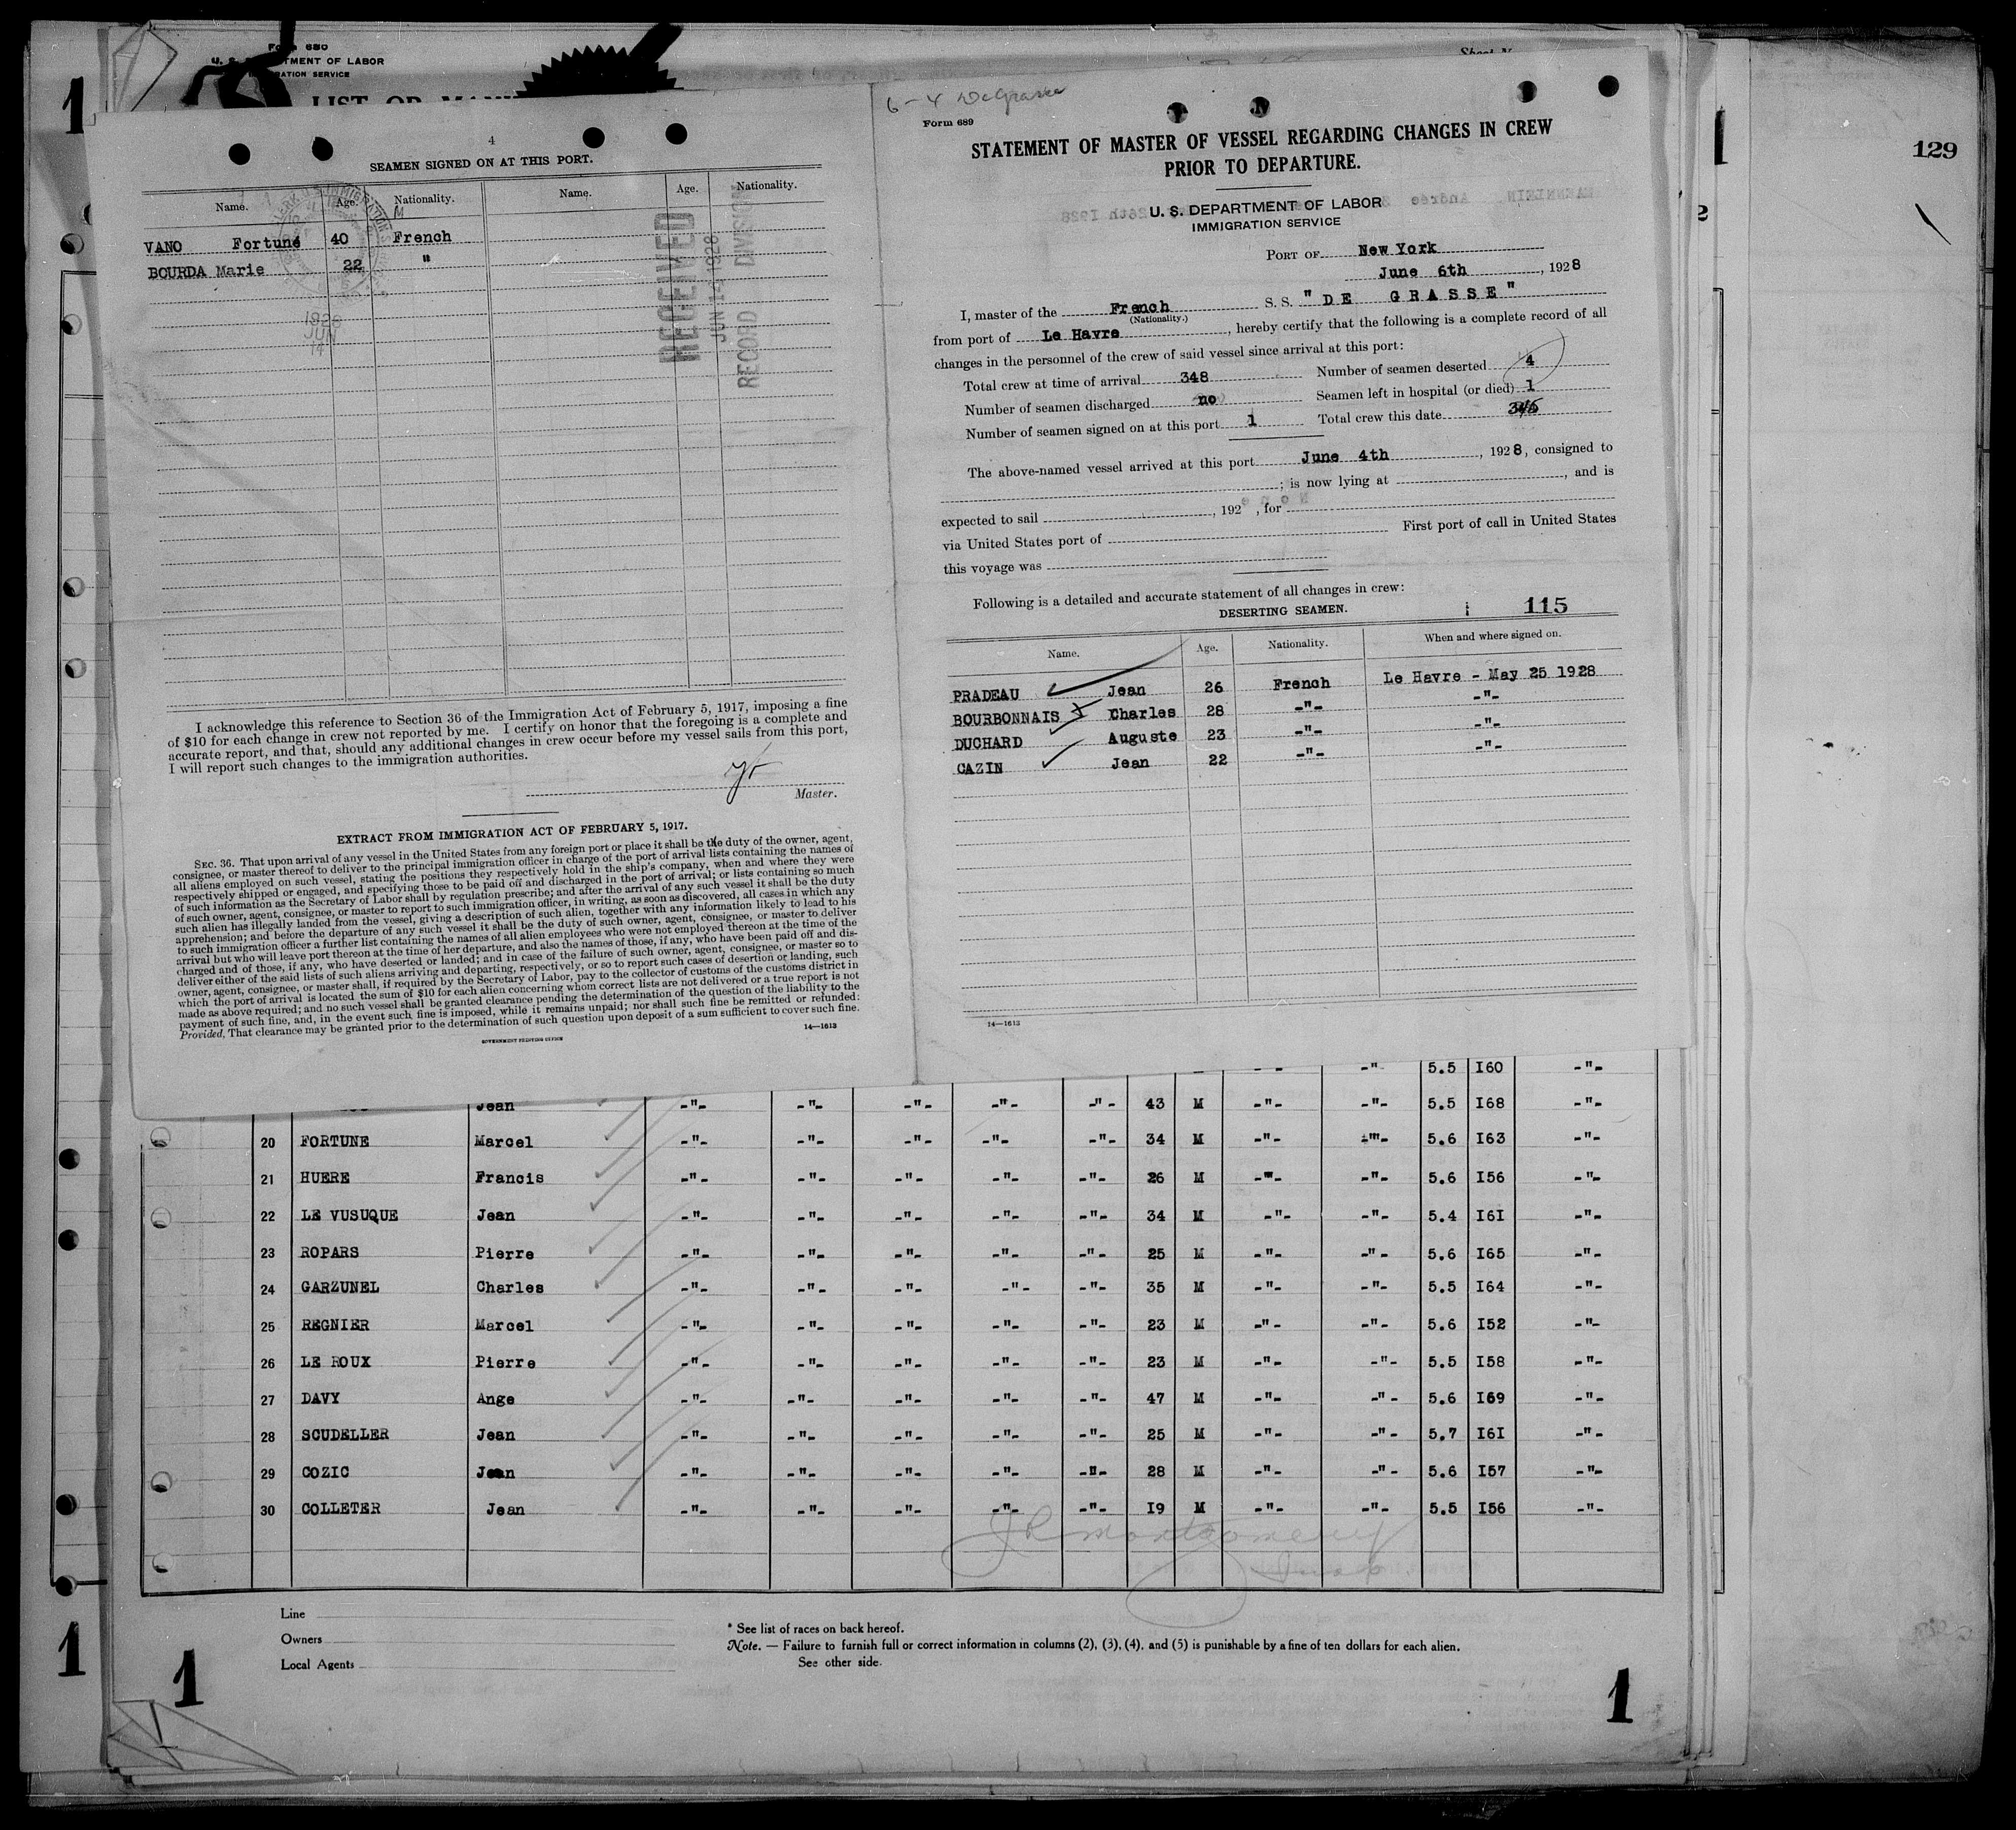 Form 680
U. S. DEPARTMENT OF LABOR
IMMIGRATION SERVICE
LIST OR
1
4
SEAMEN SIGNED ON AT THIS PORT.
Name. Age. Nationality. Name. Age. Nationality.
M
VANO Fortuné 40 French
BOURDA Marie 22 "
1928
JUN
14
RECEIVED
JUN 14 1928
RECORD DIVISION
I acknowledge this reference to Section 36 of the Immigration Act of February 5, 1917, imposing a fine
of $10 for each change in crew not reported by me. I certify on honor that the foregoing is a complete and
accurate report, and that, should any additional changes in crew occur before my vessel sails from this port,
I will report such changes to the immigration authorities.
Master.
EXTRACT FROM IMMIGRATION ACT OF FEBRUARY 5, 1917.
SEC. 36. That upon arrival of any vessel in the United States from any foreign port or place it shall be the duty of the owner, agent,
consignee, or master thereof to deliver to the principal immigration officer in charge of the port of arrival lists containing the names of
all aliens employed on such vessel, stating the positions they respectively hold in the ship's company, when and where they were
respectively shipped or engaged, and specifying those to be paid off and discharged in the port of arrival; or lists containing so much
of such information as the Secretary of Labor shall by regulation prescribe; and after the arrival of any such vessel it shall be the duty
of such owner, agent, consignee, or master to report to such immigration officer, in writing, as soon as discovered, all cases in which any
such alien has illegally landed from the vessel, giving a description of such alien, together with any information likely to lead to his
apprehension; and before the departure of any such vessel it shall be the duty of such owner, agent, consignee, or master to deliver
to such immigration officer a further list containing the names of all alien employees who were not employed thereon at the time of the
arrival but who will leave port thereon at the time of her departure, and also the names of those, if any, who have been paid off and dis-
charged and of those, if any, who have deserted or landed; and in case of the failure of such owner, agent, consignee, or master so to
deliver either of the said lists of such aliens arriving and departing, respectively, or so to report such cases of desertion or landing, such
owner, agent, consignee, or master shall, if required by the Secretary of Labor, pay to the collector of customs of the customs district in
which the port of arrival is located the sum of $10 for each alien concerning whom correct lists are not delivered or a true report is not
made as above required; and no such vessel shall be granted clearance pending the determination of the question of the liability to the
payment of such fine, and, in the event such fine is imposed, while it remains unpaid; nor shall such fine be remitted or refunded:
Provided, That clearance may be granted prior to the determination of such question upon deposit of a sum sufficient to cover such fine.
14—1613
GOVERNMENT PRINTING OFFICE
6-4 DeGrasse
Form 689
STATEMENT OF MASTER OF VESSEL REGARDING CHANGES IN CREW
PRIOR TO DEPARTURE.
U. S. DEPARTMENT OF LABOR
IMMIGRATION SERVICE
PORT OF New York
June 6th, 1928
I, master of the French S. S. "DE GRASSE"
(Nationality.)
from port of Le Havre, hereby certify that the following is a complete record of all
changes in the personnel of the crew of said vessel since arrival at this port:
Total crew at time of arrival 348 Number of seamen deserted 4
Number of seamen discharged no Seamen left in hospital (or died) 1
Number of seamen signed on at this port 1 Total crew this date
The above-named vessel arrived at this port June 4th, 1928, consigned to
; is now lying at , and is
expected to sail , 192 , for
via United States port of First port of call in United States
this voyage was
Following is a detailed and accurate statement of all changes in crew:
DESERTING SEAMEN. 115
Name. Age. Nationality. When and where signed on.
PRADEAU Jean 26 French Le Havre - May 25 1928
BOURBONNAIS Charles 28 -"- -"-
DUCHARD Auguste 23 -"- -"-
CAZIN Jean 22 -"- -"-
14—1613
129
2
-"- -"- 5.5 I60 -"-
Jean -"- -"- -"- -"- -"- 43 M -"- -"- 5.5 I68 -"-
20 FORTUNE Marcel -"- -"- -"- -"- -"- 34 M -"- -"- 5.6 I63 -"-
21 HUERE Francis -"- -"- -"- -"- -"- 26 M -"- -"- 5.6 I56 -"-
22 LE VUSUQUE Jean -"- -"- -"- -"- -"- 34 M -"- -"- 5.4 I6I -"-
23 ROPARS Pierre -"- -"- -"- -"- -"- 25 M -"- -"- 5.6 I65 -"-
24 GARZUNEL Charles -"- -"- -"- -"- -"- 35 M -"- -"- 5.5 I64 -"-
25 REGNIER Marcel -"- -"- -"- -"- -"- 23 M -"- -"- 5.6 I52 -"-
26 LE ROUX Pierre -"- -"- -"- -"- -"- 23 M -"- -"- 5.5 I58 -"-
27 DAVY Ange -"- -"- -"- -"- -"- 47 M -"- -"- 5.6 I69 -"-
28 SCUDELLER Jean -"- -"- -"- -"- -"- 25 M -"- -"- 5.7 I6I -"-
29 COZIC Jean -"- -"- -"- -"- -"- 28 M -"- -"- 5.6 I57 -"-
30 COLLETER Jean -"- -"- -"- -"- -"- I9 M -"- -"- 5.5 I56 -"-
Montgomery
Line
Owners
Local Agents
* See list of races on back hereof.
Note. — Failure to furnish full or correct information in columns (2), (3), (4), and (5) is punishable by a fine of ten dollars for each alien.
See other side.
1
1
1